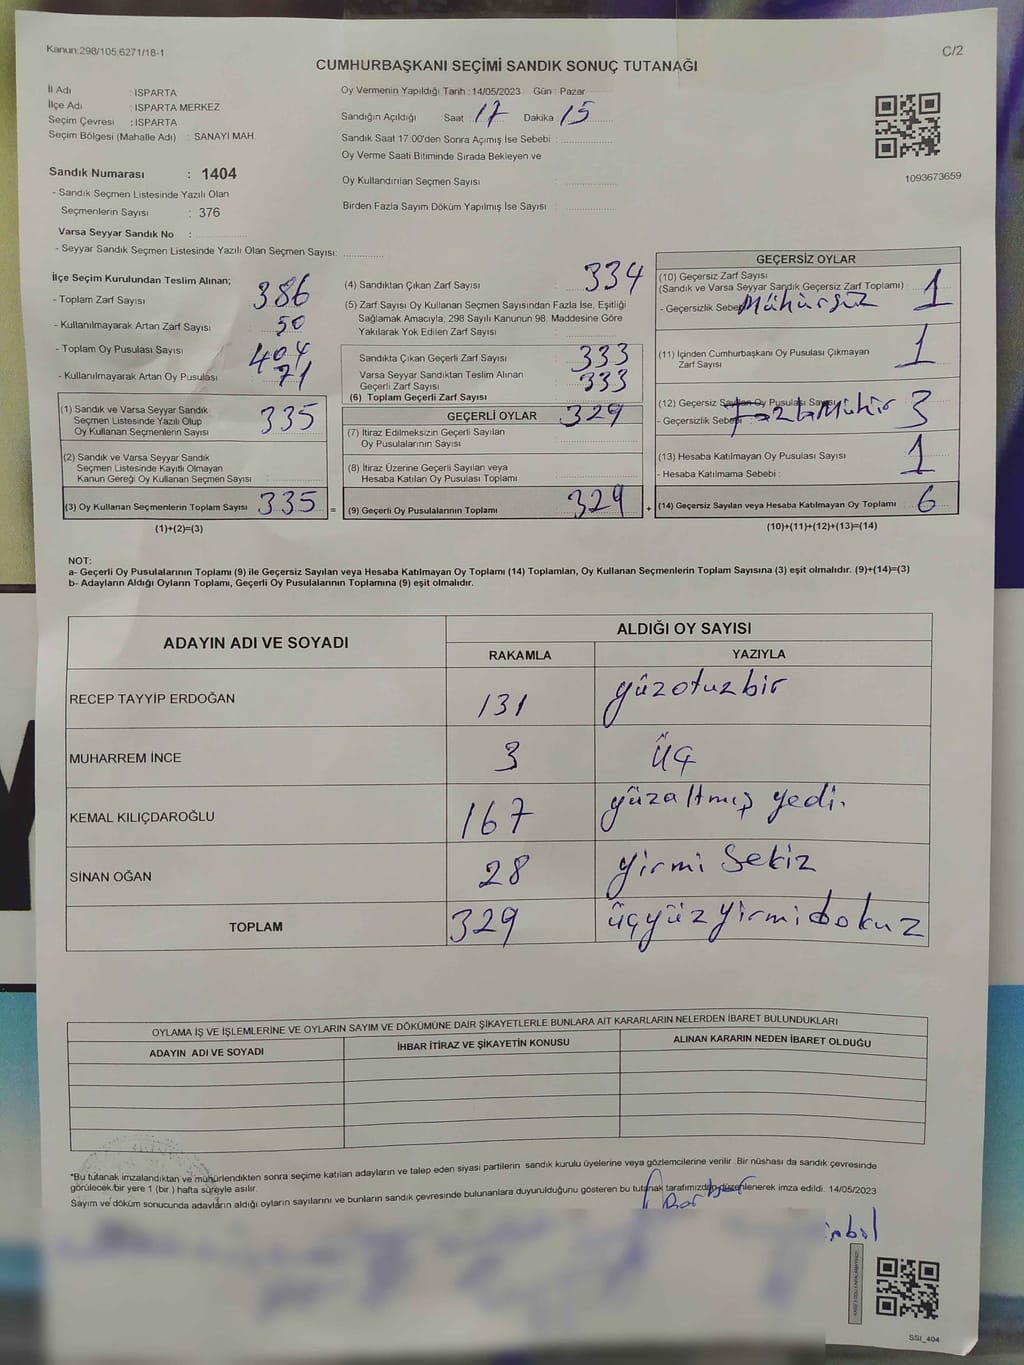 Kanun:298/105;6271/18-1
C/2
CUMHURBAŞKANI SEÇİMİ SANDIK SONUÇ TUTANAĞI
İl Adı : ISPARTA
İlçe Adı : ISPARTA MERKEZ
Seçim Çevresi : ISPARTA
Seçim Bölgesi (Mahalle Adı) : SANAYİ MAH.
Sandık Numarası : 1404
- Sandık Seçmen Listesinde Yazılı Olan
Seçmenlerin Sayısı : 376
Varsa Seyyar Sandık No :
- Seyyar Sandık Seçmen Listesinde Yazılı Olan Seçmen Sayısı:
Oy Vermenin Yapıldığı Tarih :14/05/2023 Gün : Pazar
Sandığın Açıldığı Saat 17 Dakika 15
Sandık Saat 17:00'den Sonra Açımış İse Sebebi :
Oy Verme Saati Bitiminde Sırada Bekleyen ve
Oy Kullandırılan Seçmen Sayısı :
Birden Fazla Sayım Döküm Yapılmış İse Sayısı :
1093673659
İlçe Seçim Kurulundan Teslim Alınan;
- Toplam Zarf Sayısı : 386
- Kullanılmayarak Artan Zarf Sayısı : 50
- Toplam Oy Pusulası Sayısı : 404
- Kullanılmayarak Artan Oy Pusulası : 71
(1) Sandık ve Varsa Seyyar Sandık
Seçmen Listesinde Yazılı Olup
Oy Kullanan Seçmenlerin Sayısı : 335
(2) Sandık ve Varsa Seyyar Sandık
Seçmen Listesinde Kayıtlı Olmayan
Kanun Gereği Oy Kullanan Seçmen Sayısı :
(3) Oy Kullanan Seçmenlerin Toplam Sayısı : 335 =
(1)+(2)=(3)
(4) Sandıktan Çıkan Zarf Sayısı : 334
(5) Zarf Sayısı Oy Kullanan Seçmen Sayısından Fazla İse, Eşitliği
Sağlamak Amacıyla; 298 Sayılı Kanunun 98. Maddesine Göre
Yakılarak Yok Edilen Zarf Sayısı :
Sandıkta Çıkan Geçerli Zarf Sayısı : 333
Varsa Seyyar Sandıktan Teslim Alınan
Geçerli Zarf Sayısı : 333
(6) Toplam Geçerli Zarf Sayısı :
GEÇERLİ OYLAR 329
(7) İtiraz Edilmeksizin Geçerli Sayılan
Oy Pusulalarının Sayısı :
(8) İtiraz Üzerine Geçerli Sayılan veya
Hesaba Katılan Oy Pusulası Toplamı :
(9) Geçerli Oy Pusulalarının Toplamı : 329 +
GEÇERSİZ OYLAR
(10) Geçersiz Zarf Sayısı
(Sandık ve Varsa Seyyar Sandık Geçersiz Zarf Toplamı) : 1
- Geçersizlik Sebebi Mühürsüz
(11) İçinden Cumhurbaşkanı Oy Pusulası Çıkmayan
Zarf Sayısı : 1
(12) Geçersiz Sayılan Oy Pusulası Sayısı : 3
- Geçersizlik Sebebi Fazla Mühür
(13) Hesaba Katılmayan Oy Pusulası Sayısı : 1
- Hesaba Katılmama Sebebi :
(14) Geçersiz Sayılan veya Hesaba Katılmayan Oy Toplamı : 6
(10)+(11)+(12)+(13)=(14)
NOT:
a- Geçerli Oy Pusulalarının Toplamı (9) ile Geçersiz Sayılan veya Hesaba Katılmayan Oy Toplamı (14) Toplamları, Oy Kullanan Seçmenlerin Toplam Sayısına (3) eşit olmalıdır. (9)+(14)=(3)
b- Adayların Aldığı Oyların Toplamı, Geçerli Oy Pusulalarının Toplamına (9) eşit olmalıdır.
ADAYIN ADI VE SOYADI ALDIĞI OY SAYISI
RAKAMLA YAZIYLA
RECEP TAYYİP ERDOĞAN 131 yüzotuzbir
MUHARREM İNCE 3 üç
KEMAL KILIÇDAROĞLU 167 yüzaltmış yedi.
SİNAN OĞAN 28 yirmi sekiz
TOPLAM 329 üçyüzyirmidokuz
OYLAMA İŞ VE İŞLEMLERİNE VE OYLARIN SAYIM VE DÖKÜMÜNE DAİR ŞİKAYETLERLE BUNLARA AİT KARARLARIN NELERDEN İBARET BULUNDUKLARI
ADAYIN ADI VE SOYADI İHBAR İTİRAZ VE ŞİKAYETİN KONUSU ALINAN KARARIN NEDEN İBARET OLDUĞU
"Bu tutanak imzalandıktan ve mühürlendikten sonra seçime katılan adayların ve talep eden siyasi partilerin sandık kurulu üyelerine veya gözlemcilerine verilir .Bir nüshası da sandık çevresinde
görülecek bir yere 1 (bir ) hafta süreyle asılır.
Sayım ve döküm sonucunda adayların aldığı oyların sayılarını ve bunların sandık çevresinde bulunanlara duyurulduğunu gösteren bu tutanak tarafımızdan düzenlenerek imza edildi. 14/05/2023
SSI_404